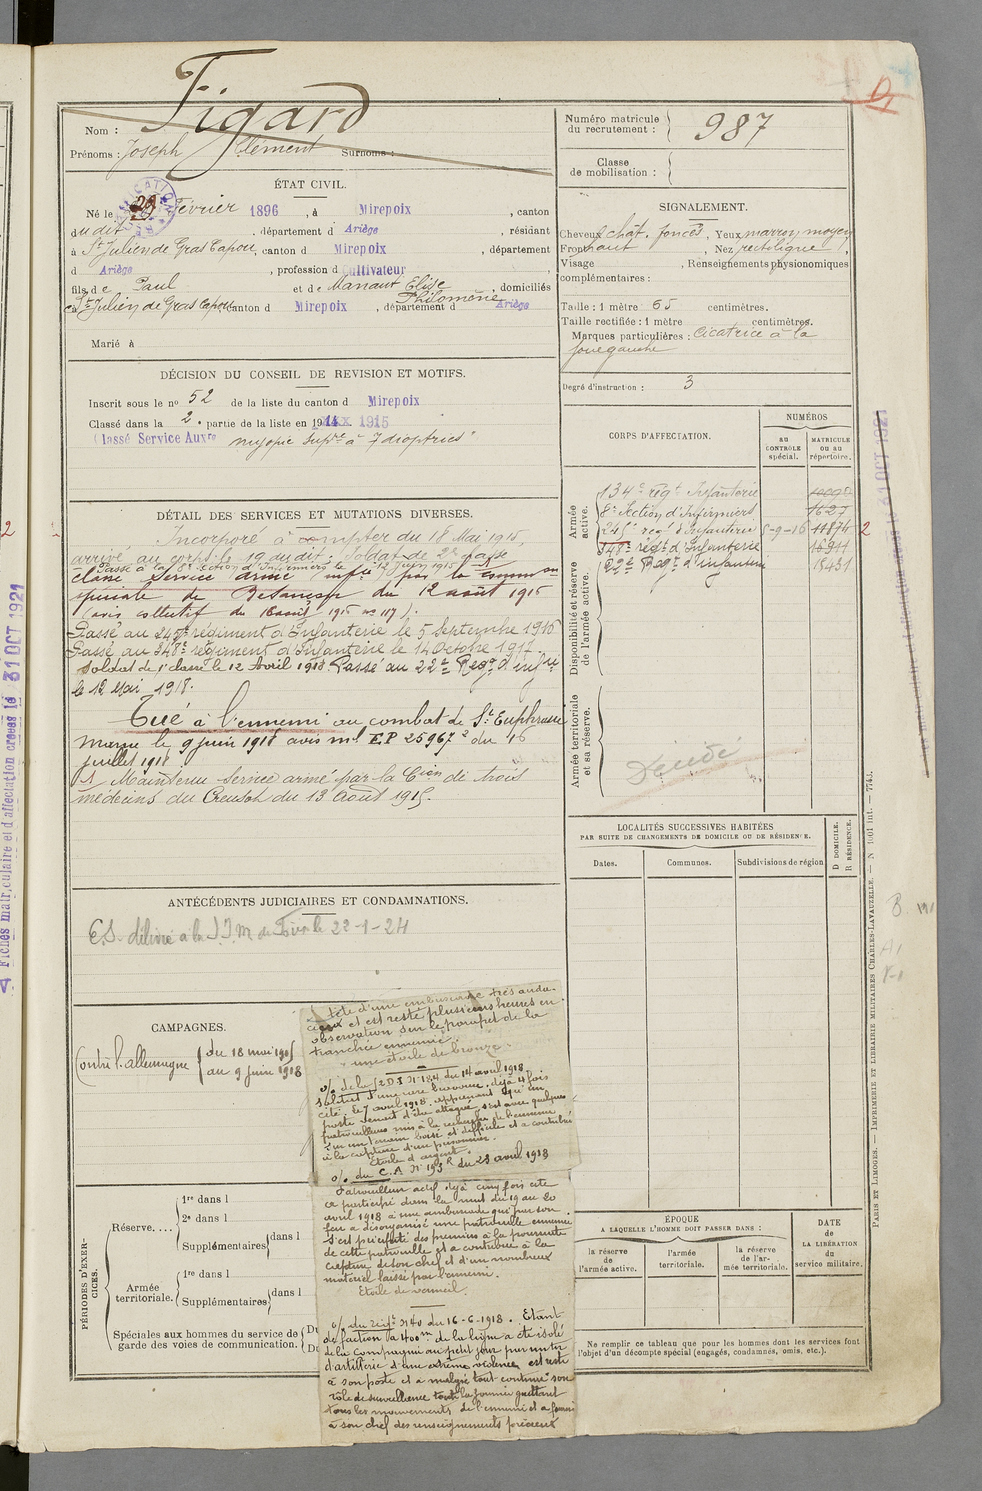 Figard
Nom :
Prénoms : Joseph Clément Surnoms :
Numéro matricule du recrutement : 987
Classe de mobilisation :
ÉTAT CIVIL.
Né le 29 Février 1896, à Mirepoix, canton
dudit, département d Ariège, résidant
à St Julien de Gras Capou, canton d Mirepoix, département
d Ariège, profession d cultivateur
fils de Paul et de Manaut Elise Philomène, domiciliés
à St Julien de Gras Capou canton d Mirepoix, département d Ariège
Marié à
SIGNALEMENT.
Cheveux chât. foncés, Yeux marron moyen
Front haut, Nez rectiligne,
Visage , Renseignements physionomiques
complémentaires :
Taille : 1 mètre 65 centimètres.
Taille rectifiée : 1 mètre centimètres.
Marques particulières : Cicatrice à la
joue gauche
Degré d'instruction : 3
DÉCISION DU CONSEIL DE REVISION ET MOTIFS.
Inscrit sous le no 52 de la liste du canton d Mirepoix
Classé dans la 2e partie de la liste en 1915
Classé Service Auxre myopie supre à 7 dioptries
DÉTAIL DES SERVICES ET MUTATIONS DIVERSES.
Incorporé à compter du 18 Mai 1915,
arrivé au corps le 19 dudit. Soldat de 2e classe
Passé à la 8e Section d'Infirmiers le 12 juin 1915
classé Service armé par la commission
spéciale de Besançon du 12 août 1915
(avis collectif du 16 août 1915 no 117).
Passé au 245e régiment d'Infanterie le 5 Septembre 1916
Passé au 348e régiment d'Infanterie le 14 Octobre 1917.
Soldat de 1e classe le 12 Avril 1918. Passé au 22e Regt d'infie
le 12 Mai 1918.
Tué à l'ennemi au combat de Ste Euphraise
Marne le 9 juin 1918 avis ml E.P 25967 du 16
juillet 1918
Maintenu Service armé par la Cion de trois
médecins du Creusot du 13 Août 1915.
CORPS D'AFFECTATION.
NUMÉROS
AU CONTRÔLE spécial.
MATRICULE OU AU répertoire.
Armée active.
134e régt Infanterie
8e Section d'Infirmiers 1627
245e regt d'Infanterie 5-9-16 11874
348e régt d'Infanterie 16911
22e Regt d'infanterie 15431
Disponibilité et réserve de l'armée active.
Armée territoriale et sa réserve.
Décédé
LOCALITÉS SUCCESSIVES HABITÉES
PAR SUITE DE CHANGEMENTS DE DOMICILE OU DE RÉSIDENCE.
Dates.
Communes.
Subdivisions de région
D DOMICILE.
R RÉSIDENCE.
ANTÉCÉDENTS JUDICIAIRES ET CONDAMNATIONS.
E.S. délivré à la S.I.M. de Foix le 22-1-24
CAMPAGNES.
Contre l'allemagne
du 18 mai 1915
au 9 juin 1918
tête d'une embuscade très auda-
cieux et est resté plusieurs heures en
observation sur le parapet de la
tranchée ennemie.
une étoile de bronze.
O/. de la 62 D.I. No 184 du 14 avril 1918.
Soldat d'une rare bravoure. déjà 4 fois
cité. le 7 avril 1918. apprenant qu'un
poste venait d'être attaqué s'est avec quelques
patrouilleurs mis à la recherche de l'ennemi
sur un terrain boisé et difficile et a contribué
à la capture d'un prisonnier.
Etoile d'argent.
O/. du C.A No 193 R du 23 avril 1918
Patrouilleur actif déjà cinq fois cité
a participé dans la nuit du 19 au 20
avril 1918 à une embuscade qui par son
feu a désorganisé une patrouille ennemie
s'est précipité des premiers à la poursuite
de cette patrouille et a contribué à la
capture de son chef et d'un nombreux
matériel laissé par l'ennemi.
Etoile de vermeil.
O/. du 22 infie No 40 du 16-6-1918. Etant
de faction à 400m de la ligne a été isolé
de la compagnie au petit jour par un tir
d'artillerie d'une extrême violence, est resté
à son poste et a malgré tout continué son
rôle de surveillance toute la journée guettant
tous les mouvements de l'ennemi et a fourni
à son chef des renseignements précieux
PÉRIODES D'EXERCICES.
Réserve....
1re dans l
2e dans l
Supplémentaires dans l
Armée territoriale.
1re dans l
Supplémentaires dans l
Spéciales aux hommes du service de
garde des voies de communication.
ÉPOQUE
A LAQUELLE L'HOMME DOIT PASSER DANS :
la réserve de l'armée active.
l'armée territoriale.
la réserve de l'armée territoriale.
DATE de LA LIBÉRATION du service militaire.
Ne remplir ce tableau que pour les hommes dont les services font
l'objet d'un décompte spécial (engagés, condamnés, omis, etc.).
PARIS ET LIMOGES. — IMPRIMERIE ET LIBRAIRIE MILITAIRES CHARLES-LAVAUZELLE.
Fiches matriculaire et d'affectation créées le 31 OCT 1921